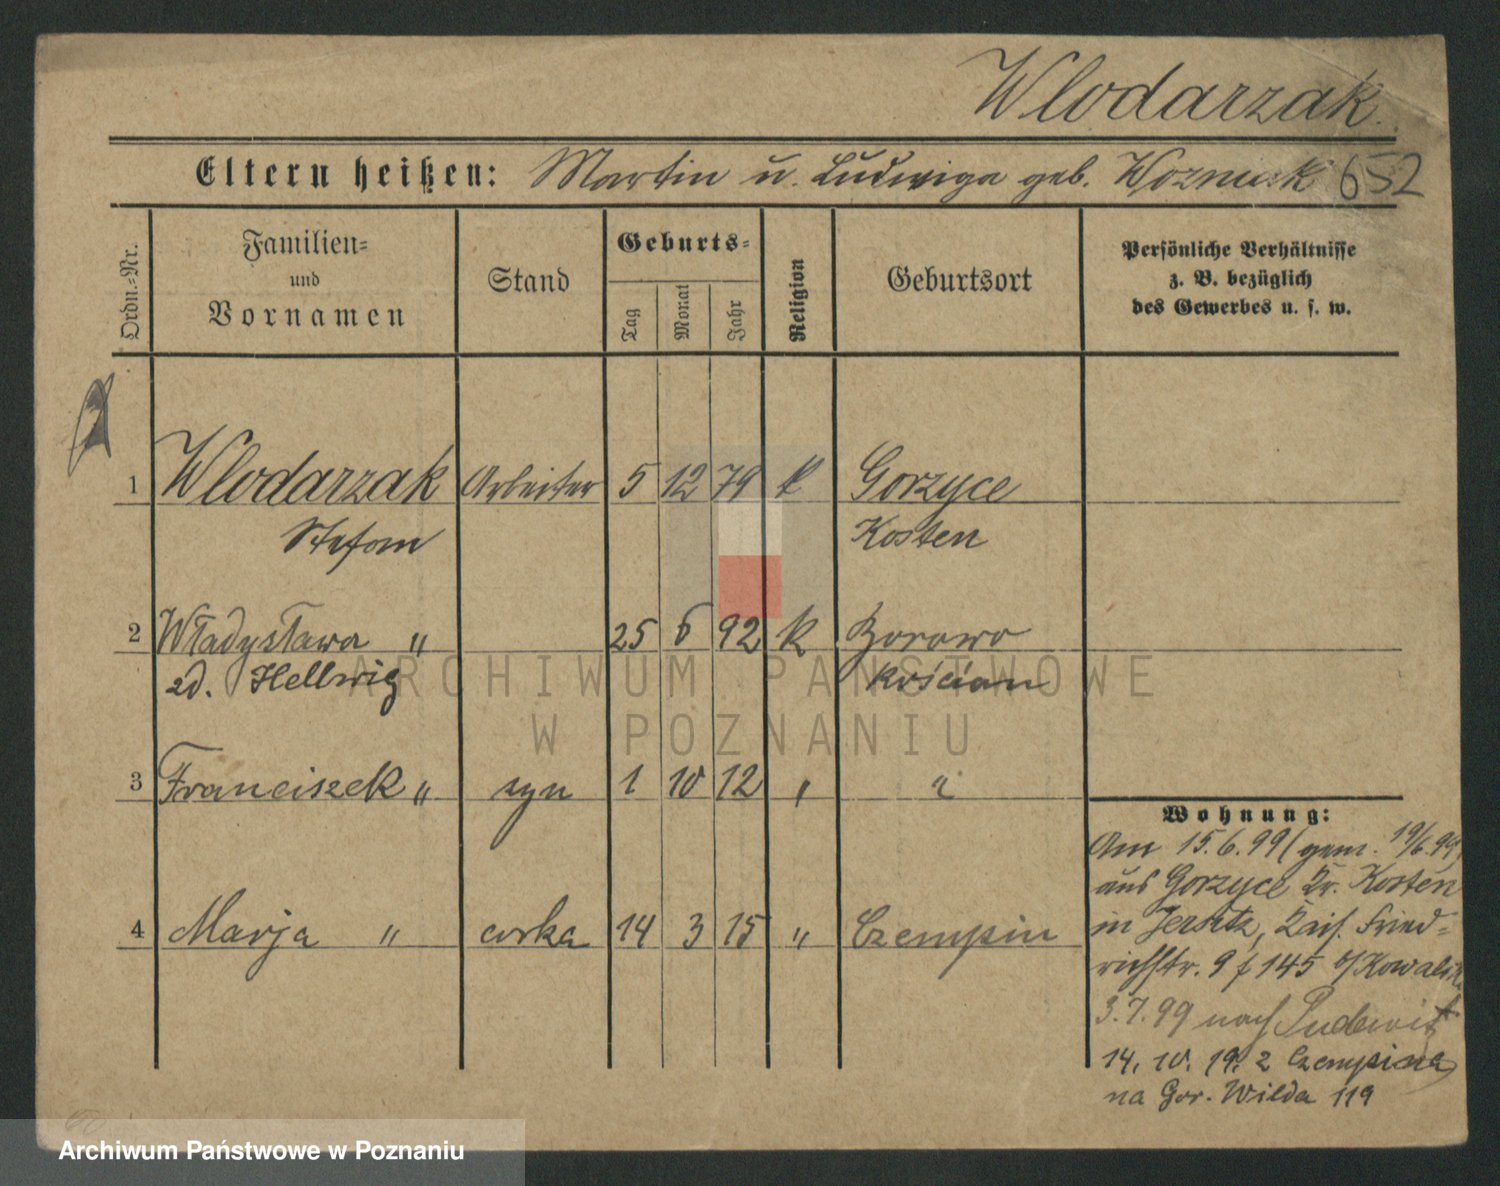 Wlodarzak.
Eltern heißen: Martin u. Ludwiga geb. Wozniak 652
Ordn.-Nr.
Familien-
und
Vornamen
Stand
Geburts-
Tag
Monat
Jahr
Religion
Geburtsort
Persönliche Verhältnisse
z. B. bezüglich
des Gewerbes u. s. w.
1 Wlodarzak Arbeiter 5 12 79 k Gorzyce
Stefan Kosten
2 Władysława " 25 6 92 k Borowo
zd. Hellwig Kościan
3 Franciszek " syn 1 10 12 " "
4 Marja " corka 14 3 15 " Czempin
Wohnung:
Am 15.6.99 (gem. 19/6.99)
aus Gorzyce Kr. Kosten
in Jersitz, Kais. Fried-
richstr. 9 145 Kowalski
3.7.99 nach Pudewitz
14. 10. 19. z Czempina
na Gór. Wilda 119
ARCHIWUM PAŃSTWOWE
W POZNANIU
Archiwum Państwowe w Poznaniu